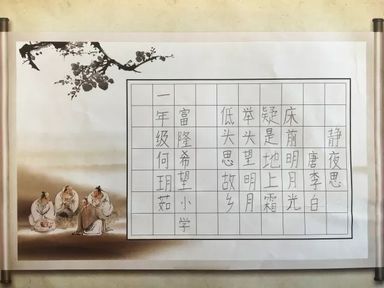 静夜思
唐李白
床前明月光
疑是地上霜
举头望明月
低头思故乡
富隆希望小学
一年级何玥茹